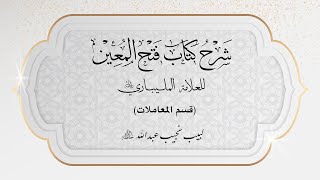 شرح كتاب فتح المعين
للعلامة المليباري
(قسم المعاملات)
لبيب نجيب عبدالله